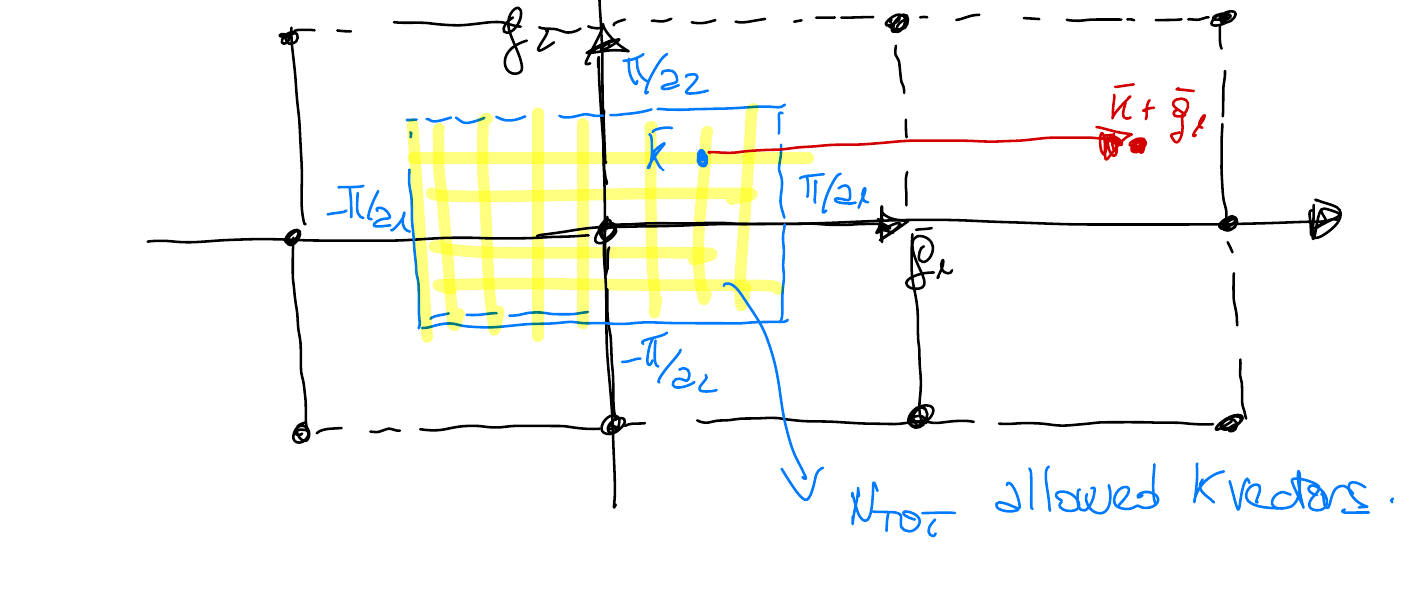 g₂
π/a₂
k̄ + ḡ₁
k̄
-π/a₁
π/a₁
ḡ₁
-π/a₂
N_TOT allowed k vectors.